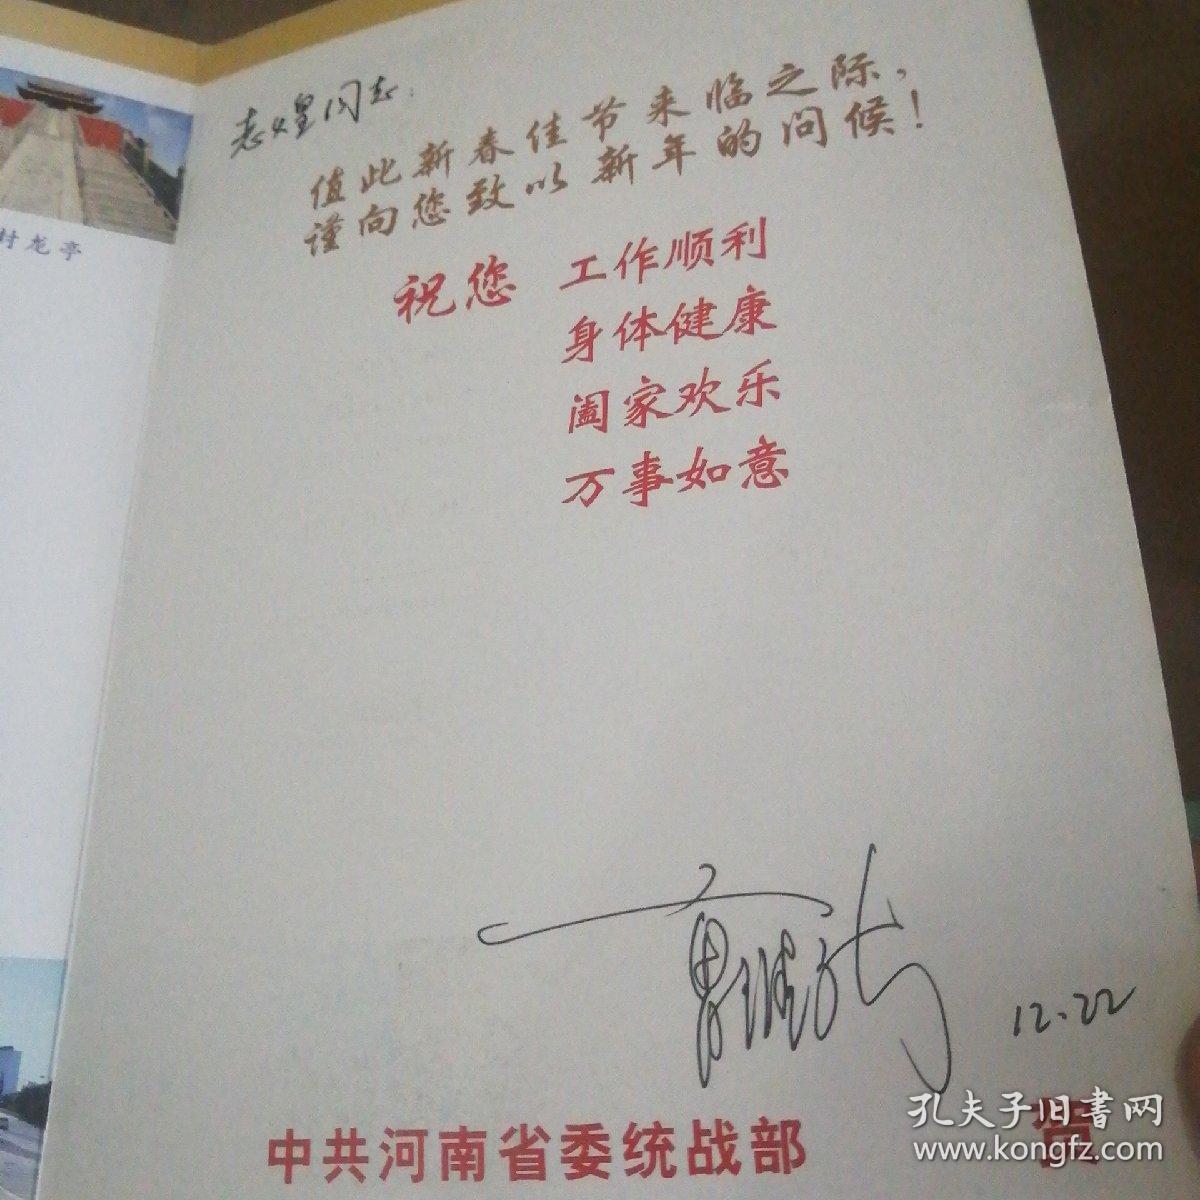 志煌同志：
值此新春佳节来临之际，
谨向您致以新年的问候！
封龙亭
祝您 工作顺利
身体健康
阖家欢乐
万事如意
12.22
中共河南省委统战部
孔夫子旧书网
www.kongfz.com